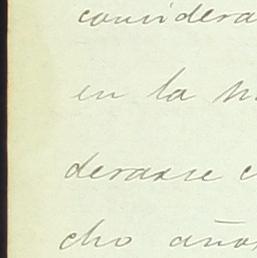 considera
en la h
derarse c
cho años